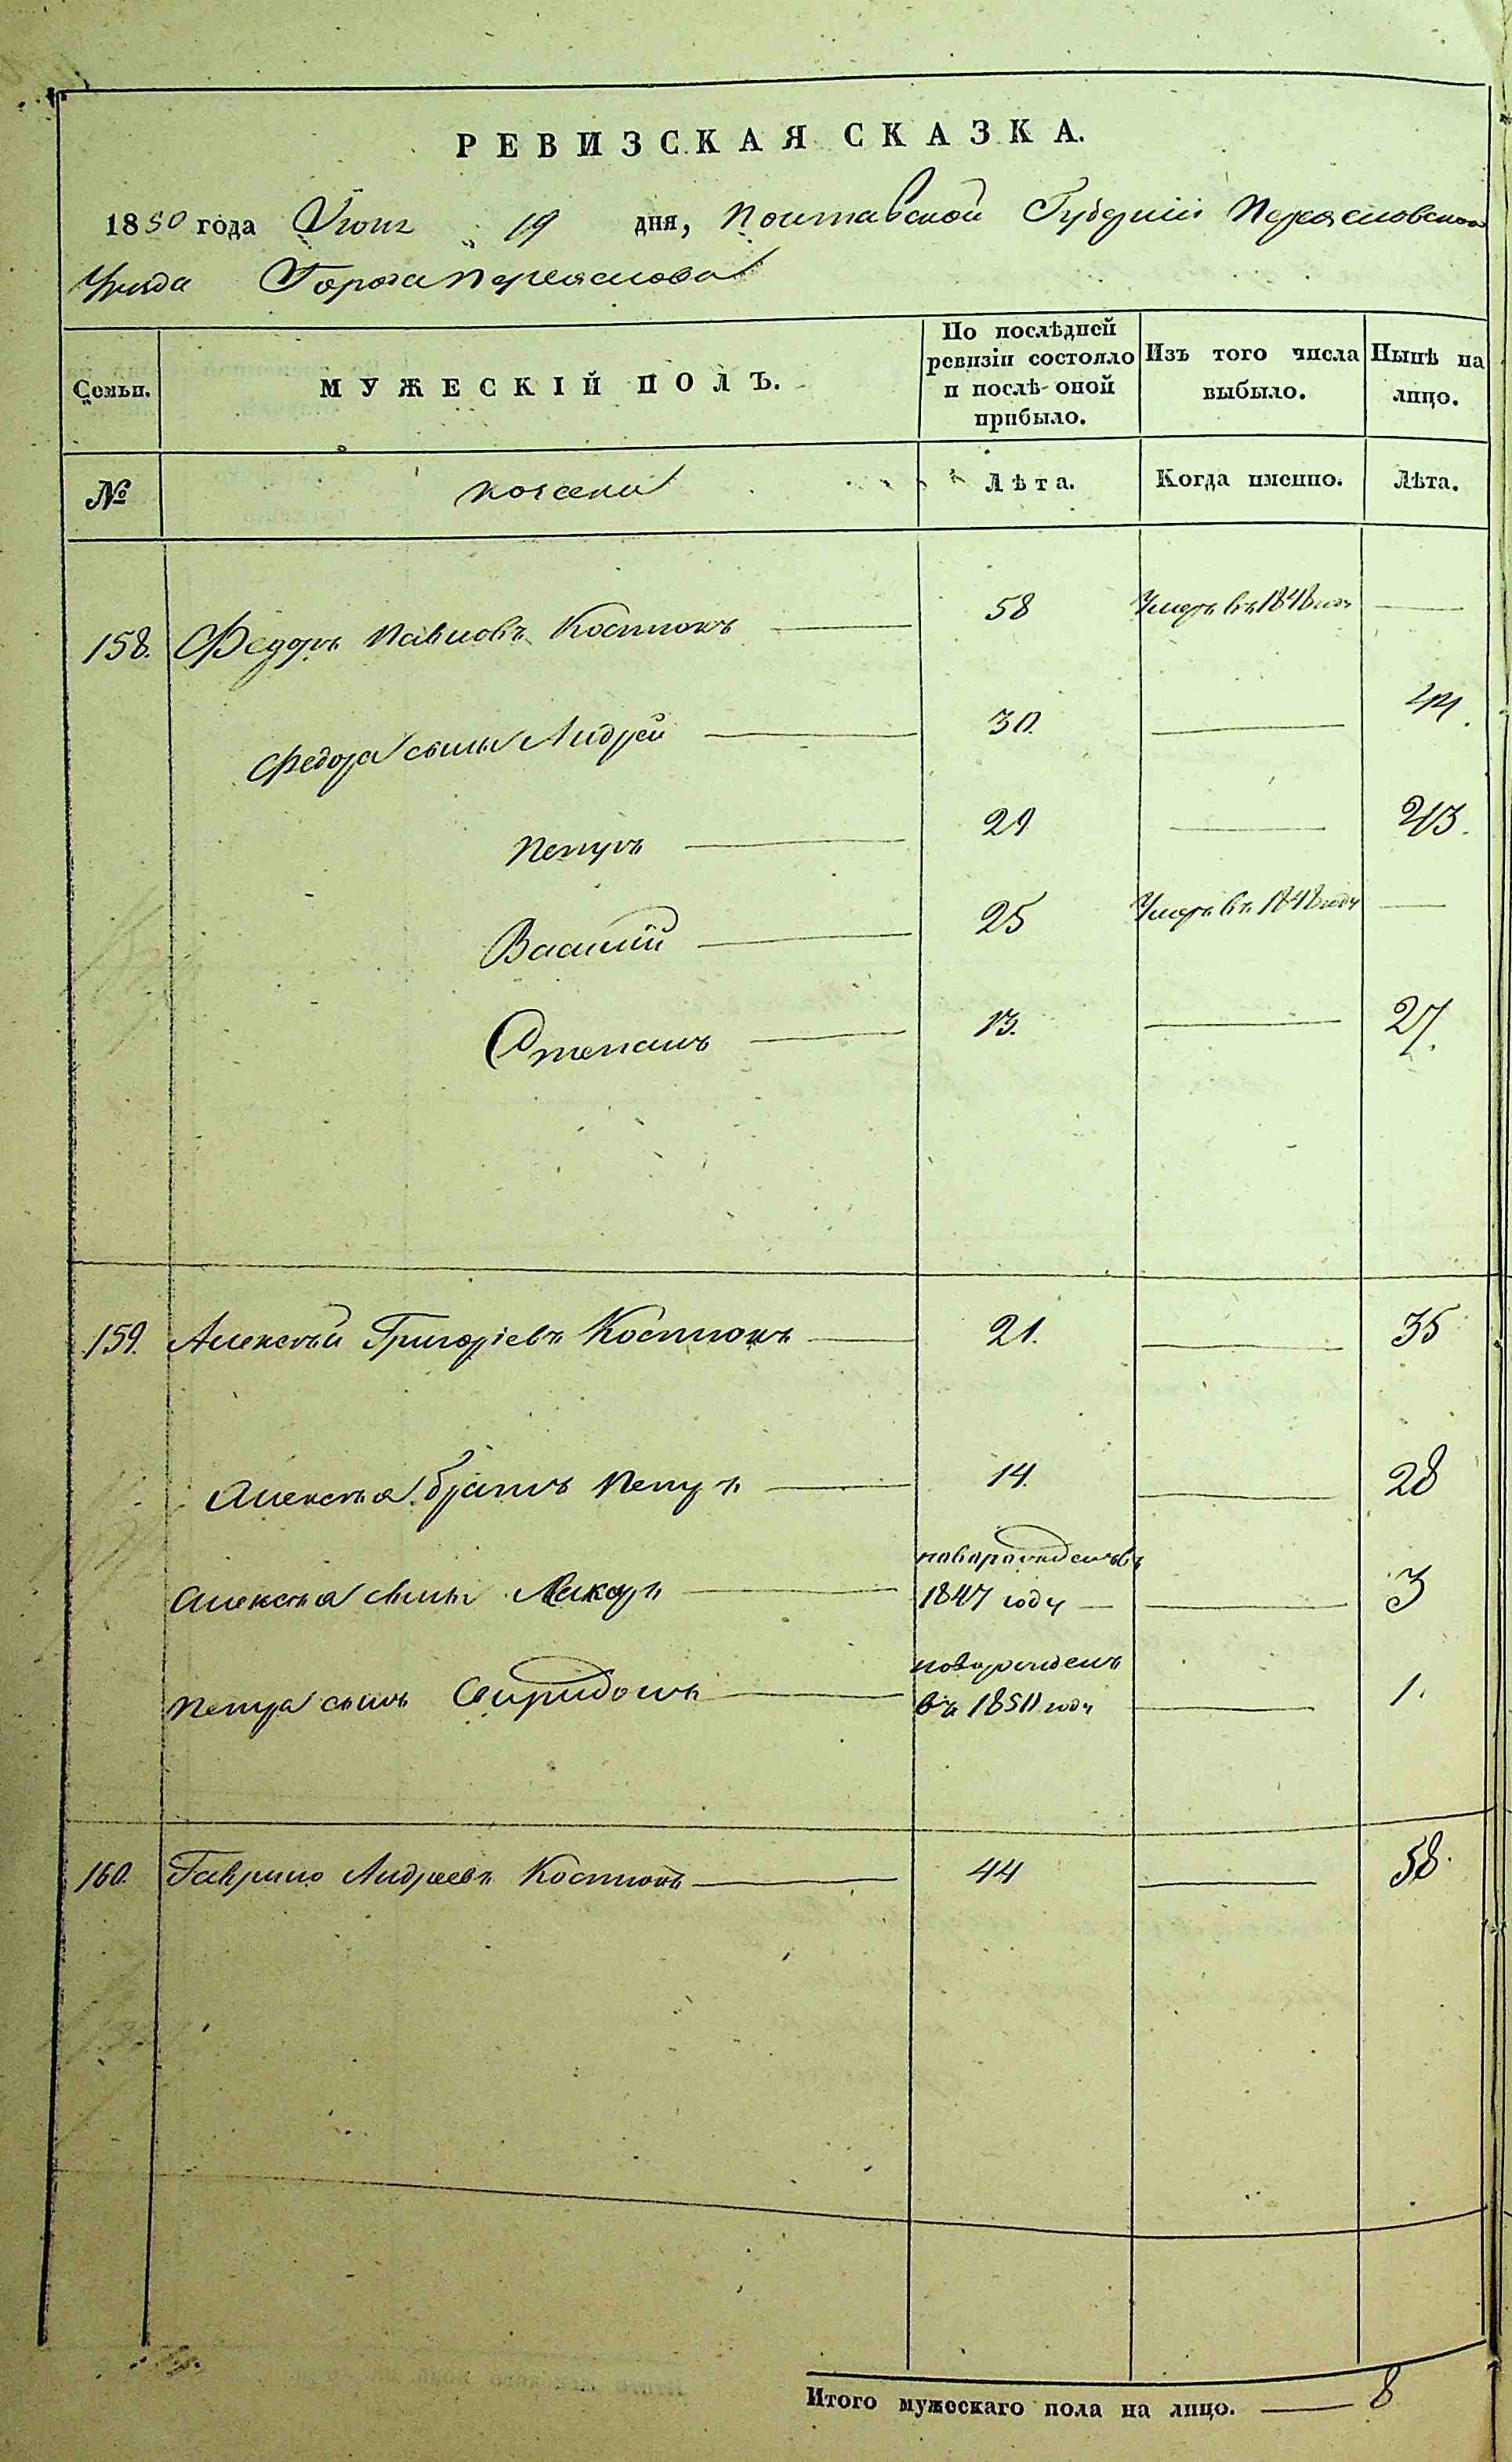 РЕВИЗСКАЯ СКАЗКА.
1850 года Іюня 19 дня, Полтавской Губерніи Переяславского
Уезда Города Переяслова
Семьи. МУЖЕСКІЙ ПОЛЪ. По послѣдней ревизіи состояло и послѣ оной прибыло. Изъ того числа выбыло. Нынѣ на лицо.
№ козаки Лѣта. Когда именно. Лѣта.
158. Федоръ Павловъ Костюкъ 58 Умеръ въ 1848 году
Федора сыны Андрей 30. 44.
Петръ 29 43.
Василій 25 Умеръ въ 1848 году
Степанъ 13. 27.
159. Алексѣй Григоріевъ Костюкъ 21. 35
Алексѣя братъ Петръ 14. 28
Алексѣя сынъ Макаръ новорожденъ въ 1847 году 3
Петра сынъ Свиридонъ новорожденъ въ 1850 году 1.
160. Гаврило Андреевъ Костюкъ 44 58.
Итого мужескаго пола на лицо. 8